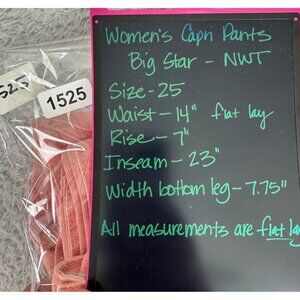 Women's Capri Pants
Big Star - NWT
Size - 25
Waist - 14" flat lay
Rise - 7"
Inseam - 23"
Width bottom leg - 7.75"
All measurements are flat lay
525
1525